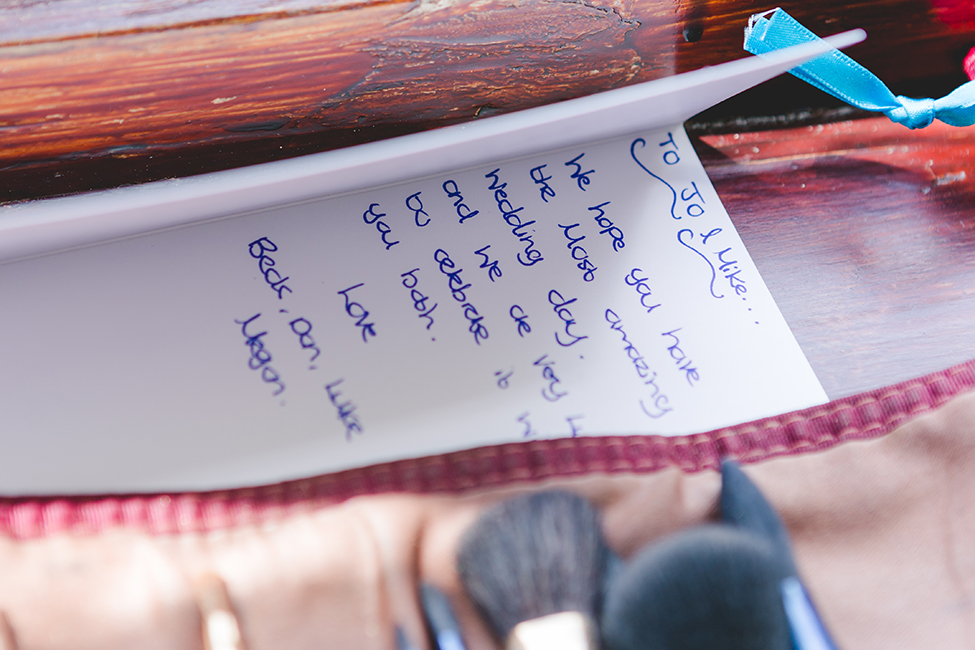 To Jo & Mike....
We hope you have
the Most amazing
Wedding day.
and we are very
to celebrate it
you both.
Love
Beck, Dan, Luke
Megan.